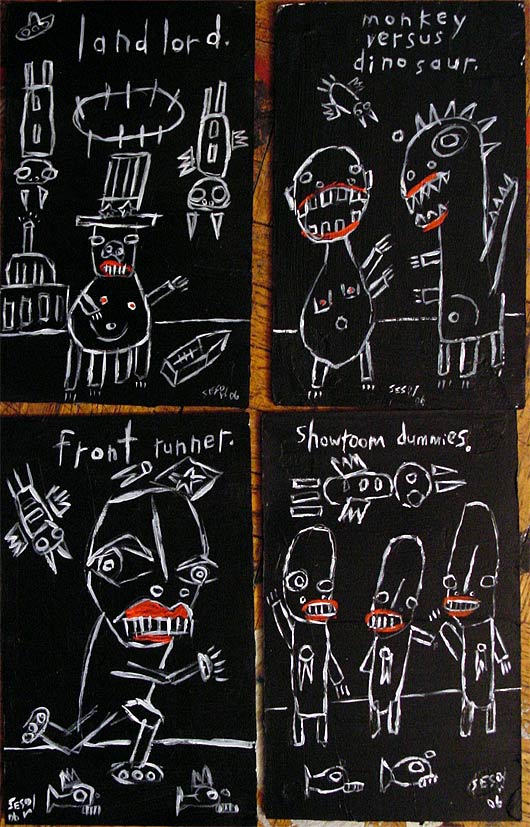 landlord.
SESOW 06
monkey
versus
dinosaur.
SESOW
06
front runner.
SESOW
06
showroom dummies.
SESOW
06